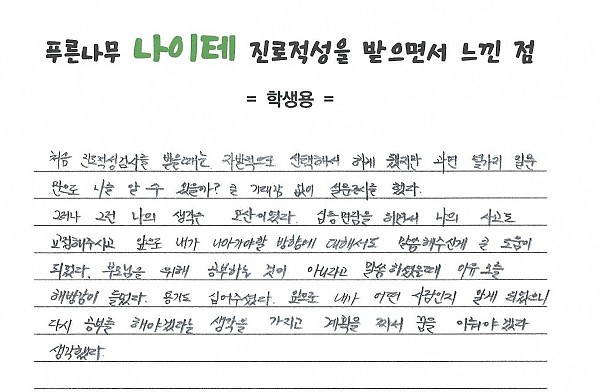 푸른나무 나이테 진로적성을 받으면서 느낀 점
= 학생용 =
처음 진로적성검사를 받을때는 자발적으로 선택해서 하게 됐지만 과연 몇가지 질문
만으로 나를 알 수 있을까? 큰 기대감 없이 설문조사를 했다.
그러나 그런 나의 생각은 오산이였다. 심층면담을 하면서 나의 사고도
교정해주시고 앞으로 내가 나아가야할 방향에 대해서도 말씀해주신게 큰 도움이
되었다. 부모님을 위해 공부하는 것이 아니라고 말씀하셨을때 아유 오늘
해방감이 들었다. 용기도 심어주셨다. 앞으로 내가 어떤 사람인지 알게 되었으니
다시 공부를 해야겠다는 생각을 가지고 계획을 짜서 꿈을 이뤄야겠다
생각했다.